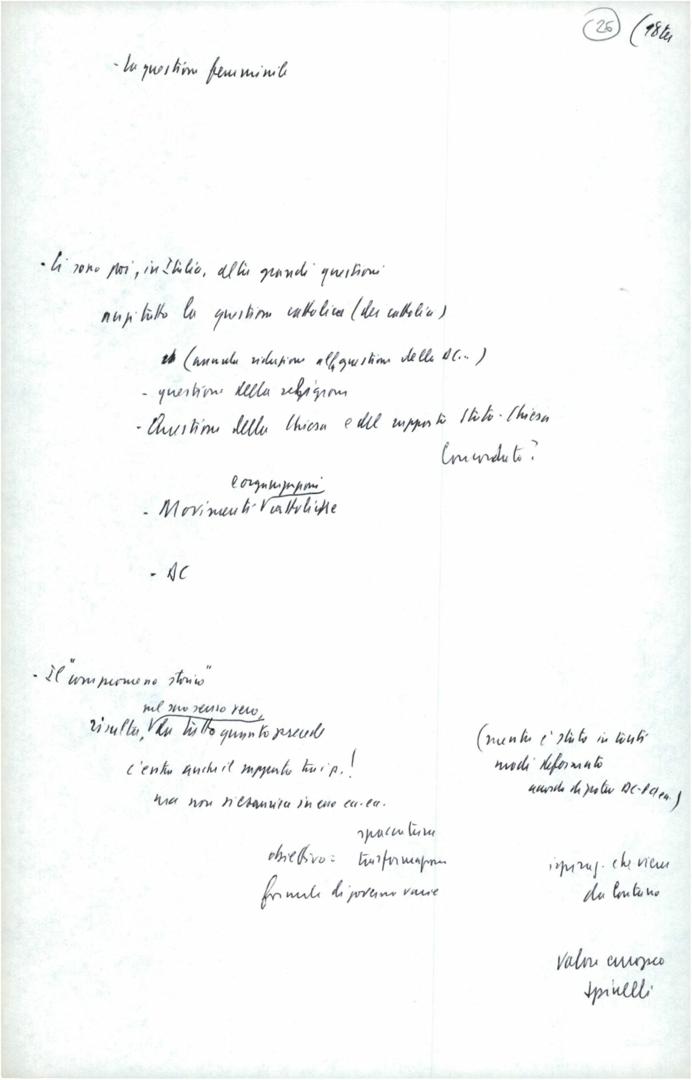 26 (98ter
- La questione femminile
- Ci sono poi, in Italia, altre grandi questioni
anzitutto la questione cattolica (dei cattolici)
(assurda riduzione alla questione della DC...)
- questione della religione
- Questione della Chiesa e del rapporto Stato-Chiesa
Concordato?
e organizzazioni
- Movimenti V cattolici
- DC
- Il "compromesso storico"
nel suo senso vero,
risulta, V da tutto quanto precede
(mentre è stato in tanti
modi deformato
accordo di potere DC-PCI ecc.)
c'entra anche il rapporto tra i p.!
ma non si esaurisce in esso ca.
spaccatura
obiettivo: trasformazione
formule di governo varie
ispiraz. che viene
da lontano
Valore europeo
Spinelli